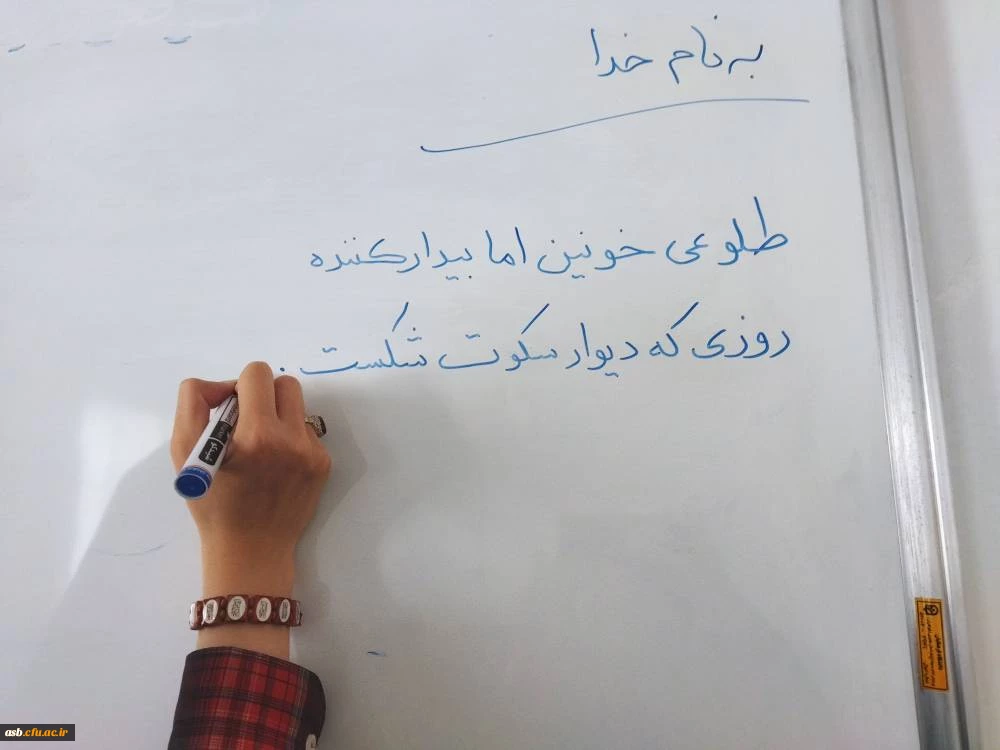 به نام خدا
طلوعی خونین اما بیدارکننده
روزی که دیوار سکوت شکست .
asb.cfu.ac.ir